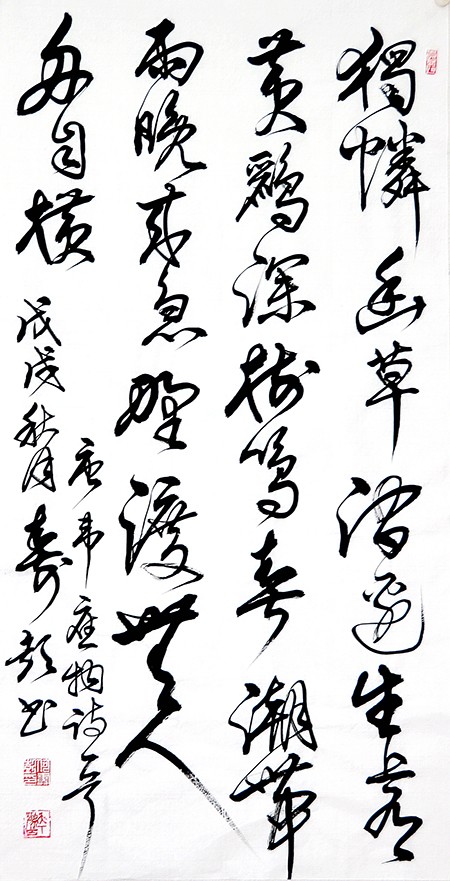 獨憐幽草澗邊生上有
黄鸝深樹鳴春潮帶
雨晚来急野渡無人
舟自横
唐韦應物诗一首
戊戌秋月壽彭书